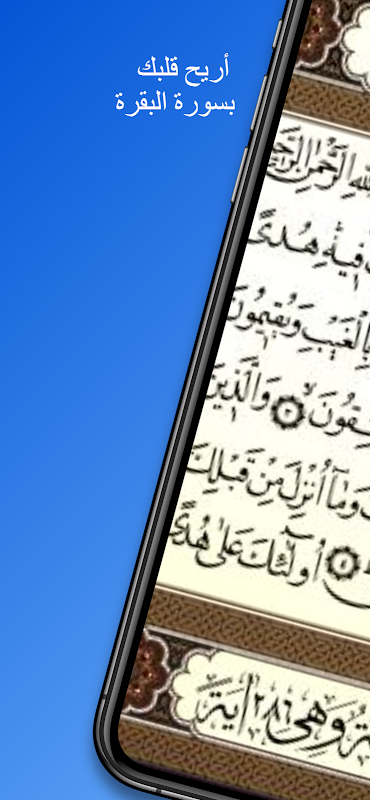 أريح قلبك
بسورة البقرة
ٱللَّهِ ٱلرَّحْمَٰنِ ٱلرَّحِيمِ
فِيهِ هُدًى
بِٱلْغَيْبِ وَيُقِيمُونَ
وَٱلَّذِينَ
وَمَآ أُنزِلَ مِن قَبْلِكَ
أُو۟لَٰٓئِكَ عَلَىٰ هُدًى
وَهِىَ ٢٨٦ آيَة